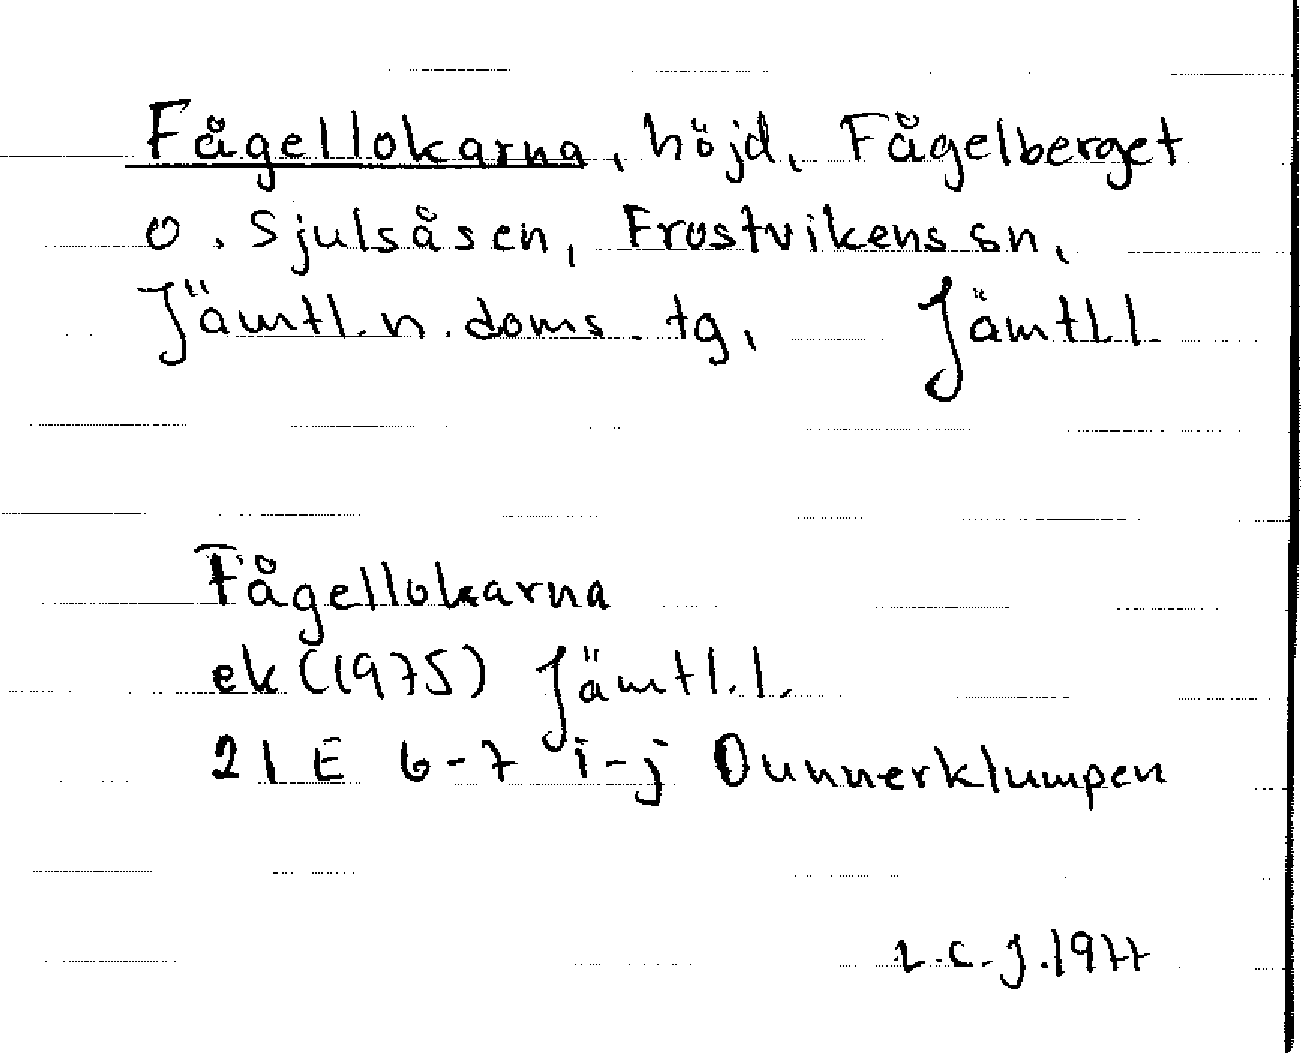 Fågellokarna, höjd, Fågelberget
o. Sjulsåsen, Frostvikens sn,
Jämtl. n. doms. tg, Jämtl.l.
Fågellokarna
ek (1975) Jämtl.l.
21E 6-7 i-j Dunnerklumpen
L.C.J. 1977